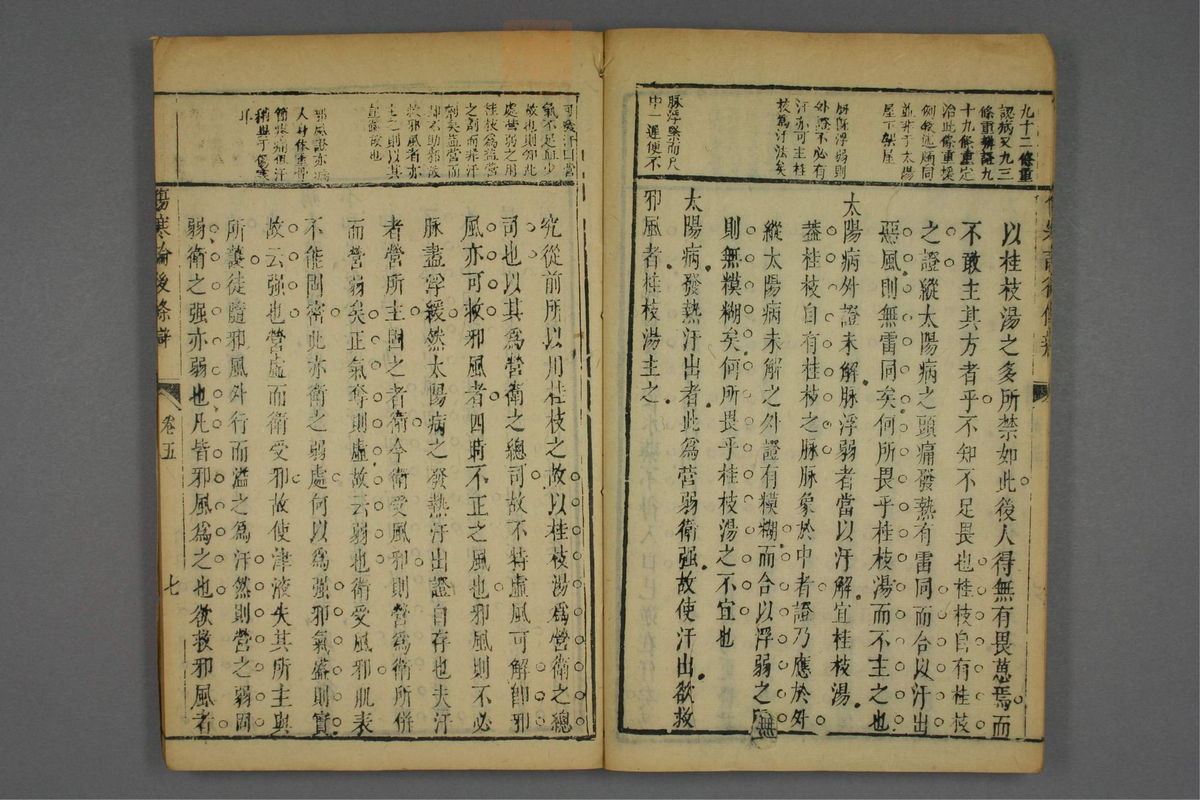 九十二條重
認病又九三
條重辨證九
十九條重定
治此條重援
例敘述頗同
並非于太陽
屋下架屋
脉既浮弱則
外證不必有
汗亦可主桂
枝爲汗法矣
脉浮緊而尺
中一遲便不
以桂枝湯之多所禁如此後人得無有畏葸焉而
不敢主其方者乎不知不足畏也桂枝自有桂枝
之證縱太陽病之頭痛發熱有雷同而合以汗出
惡風則無雷同矣何所畏乎桂枝湯而不主之也
太陽病外證未解脉浮弱者當以汗解宜桂枝湯
蓋桂枝自有桂枝之脉脉象於中者證乃應於外
縱太陽病未解之外證有糢糊而合以浮弱之
則無糢糊矣何所畏乎桂枝湯之不宜也
太陽病發熱汗出者此爲營弱衛强故使汗出欲救
邪風者桂枝湯主之
可發汗曰營
氣不足血少
故也則知此
處營弱之用
桂枝爲益營
之劑而非汗
劑矣益營而
却不助邪故
救邪風者亦
主之則以其
並
邪風證亦
人身体重骨
節疼痛但汗
稍異于傷寒
耳
傷寒論後條辯
究從前所以用桂枝之故以桂枝湯爲營衛之總
司也以其爲營衛之總司故不特虛風可解卽邪
風亦可救邪風者四時不正之風也邪風則不必
脉盡浮緩然太陽病之發熱汗出證自存也夫汗
者營所主固之者衛今衛受風邪則營爲衛所併
而營弱矣正氣奪則虛故云弱也衛受風邪肌表
不能固密此亦衛之弱處何以爲强邪氣盛則實
故云强也營虛而衛受邪故使津液失其所主與
所護徒隨邪風外行而溢之爲汗然則營之弱固
弱衛之强亦弱也凡皆邪風爲之也欲救邪風者
卷五
七